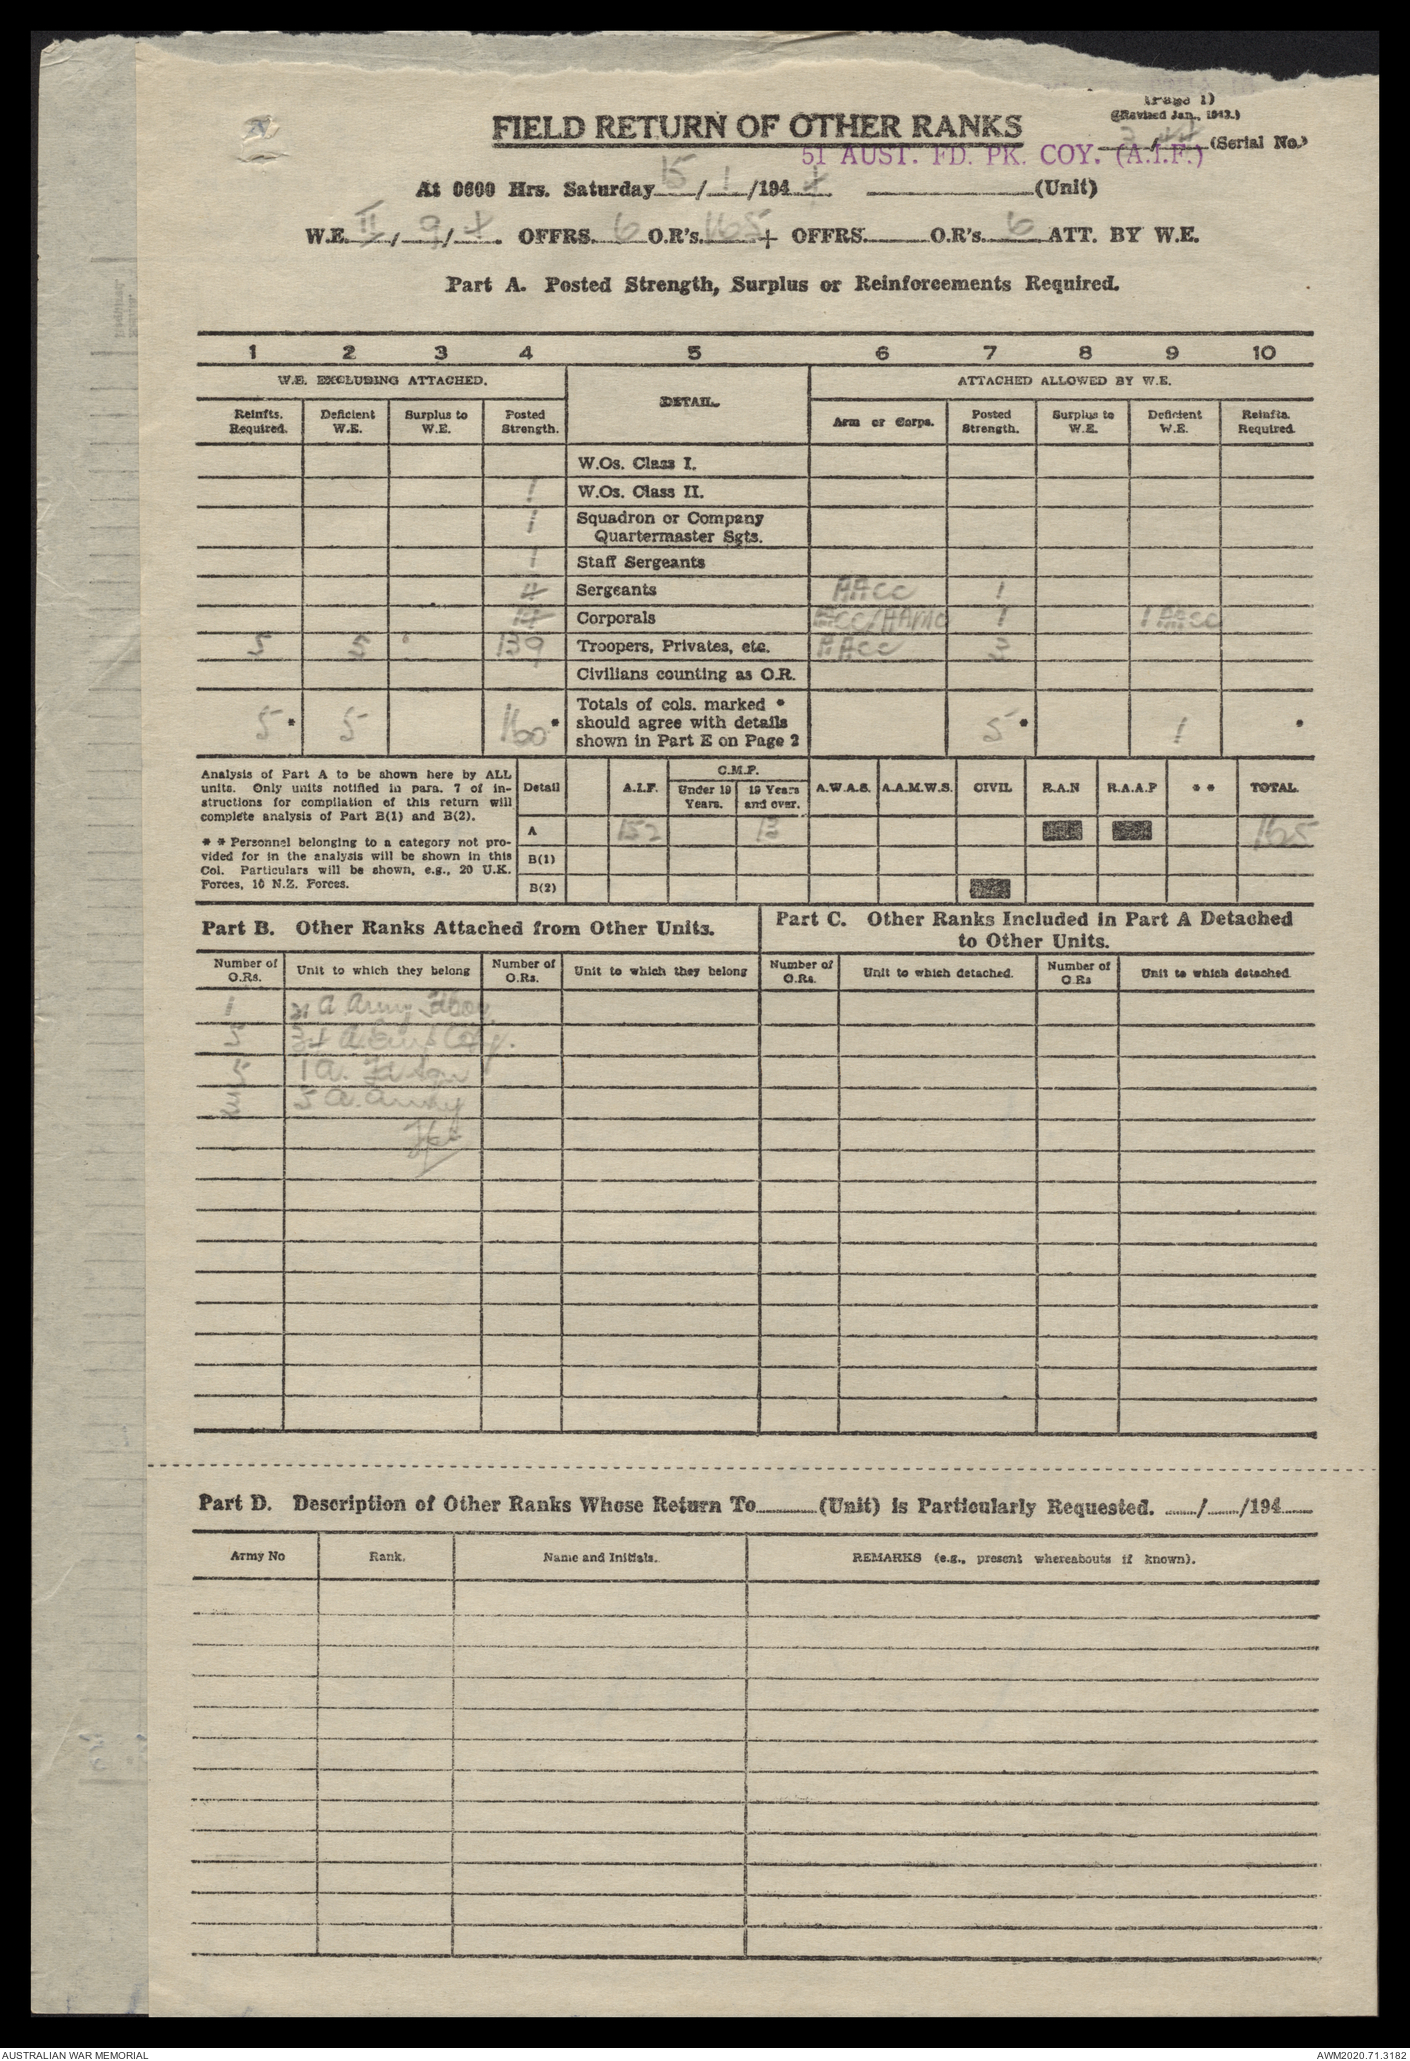 (Page 1)
(Revised Jan., 1943.)
FIELD RETURN OF OTHER RANKS
3/44 (Serial No.)
51 AUST. FD. PK. COY. (A.I.F.)
At 0600 Hrs. Saturday 15/1/1944 (Unit)
W.E. II/9/4. OFFRS. 6 O.R's. 165 + OFFRS. O.R's. 6 ATT. BY W.E.
Part A. Posted Strength, Surplus or Reinforcements Required.
1 2 3 4 5 6 7 8 9 10
W.E. EXCLUDING ATTACHED. DETAIL. ATTACHED ALLOWED BY W.E.
Reinfts. Required. Deficient W.E. Surplus to W.E. Posted Strength. Arm or Corps. Posted Strength. Surplus to W.E. Deficient W.E. Reinfts. Required.
W.Os. Class I.
1 W.Os. Class II.
1 Squadron or Company
Quartermaster Sgts.
1 Staff Sergeants
4 Sergeants AACC 1
14 Corporals ACC/AAMC 1 1 AACC
5 5 139 Troopers, Privates, etc. AACC 3
Civilians counting as O.R.
5* 5 160* Totals of cols. marked * 5* 1 *
should agree with details
shown in Part E on Page 2
Analysis of Part A to be shown here by ALL
units. Only units notified in para. 7 of in-
structions for compilation of this return will
complete analysis of Part B(1) and B(2).
* * Personnel belonging to a category not pro-
vided for in the analysis will be shown in this
Col. Particulars will be shown, e.g., 20 U.K.
Forces, 10 N.Z. Forces.
Detail A.I.F. C.M.F. Under 19 Years. 19 Years and over. A.W.A.S. A.A.M.W.S. CIVIL R.A.N R.A.A.F * * TOTAL.
A 152 13 165
B(1)
B(2)
Part B. Other Ranks Attached from Other Units.
Part C. Other Ranks Included in Part A Detached
to Other Units.
Number of O.Rs. Unit to which they belong Number of O.Rs. Unit to which they belong Number of O.Rs. Unit to which detached. Number of O.Rs Unit to which detached.
1 21 A Army Tps Coy
5 24 A. Coy.
5 1 A. Fd Sqn
5 A. Army
Tps
Part D. Description of Other Ranks Whose Return To (Unit) is Particularly Requested. / /194
Army No Rank. Name and Initials. REMARKS (e.g., present whereabouts if known).
AUSTRALIAN WAR MEMORIAL
AWM2020.71.3182